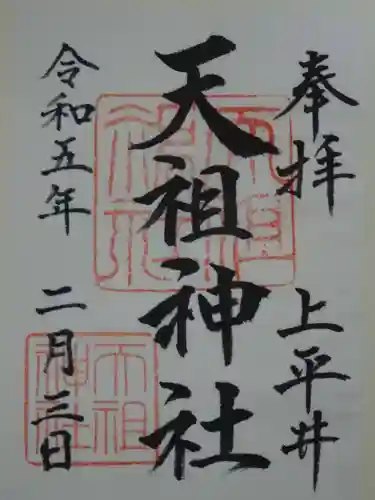 奉拝 上平井
天祖神社
令和五年 二月三日
天祖神社